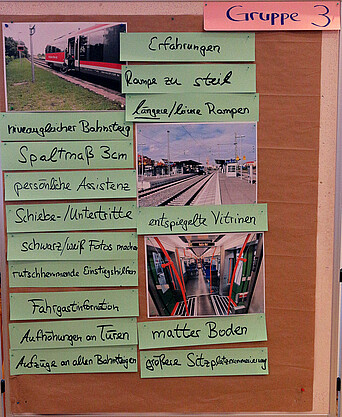 Gruppe 3
Erfahrungen
Rampe zu steil
längere/ Rampen
niveaugleicher Bahnsteig
Spaltmaß 3cm
persönliche Assistenz
Schiebe-/Untertritte
schwarz/weiß Fotos machen
rutschhemmende Einstiegshilfen
Fahrgastinformation
Aufhöhungen an Türen
Aufzüge an allen Bahnsteigen
entspiegelte Vitrinen
matter Boden
größere Sitzplatznummerierung